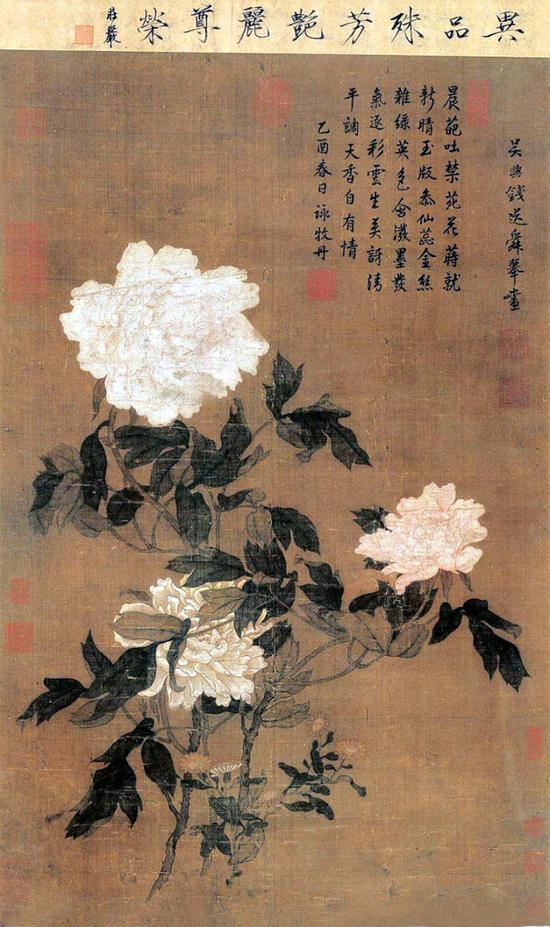 異品殊芳艷麗尊榮
莊嚴
吳興錢選舜舉畫
晨葩吐禁苑花蒔就
新晴玉版叅仙蕊金絲
雜綠英色含潑墨發
氣逐彩雲生莫訝清
平調天香自有情
乙酉春日詠牡丹